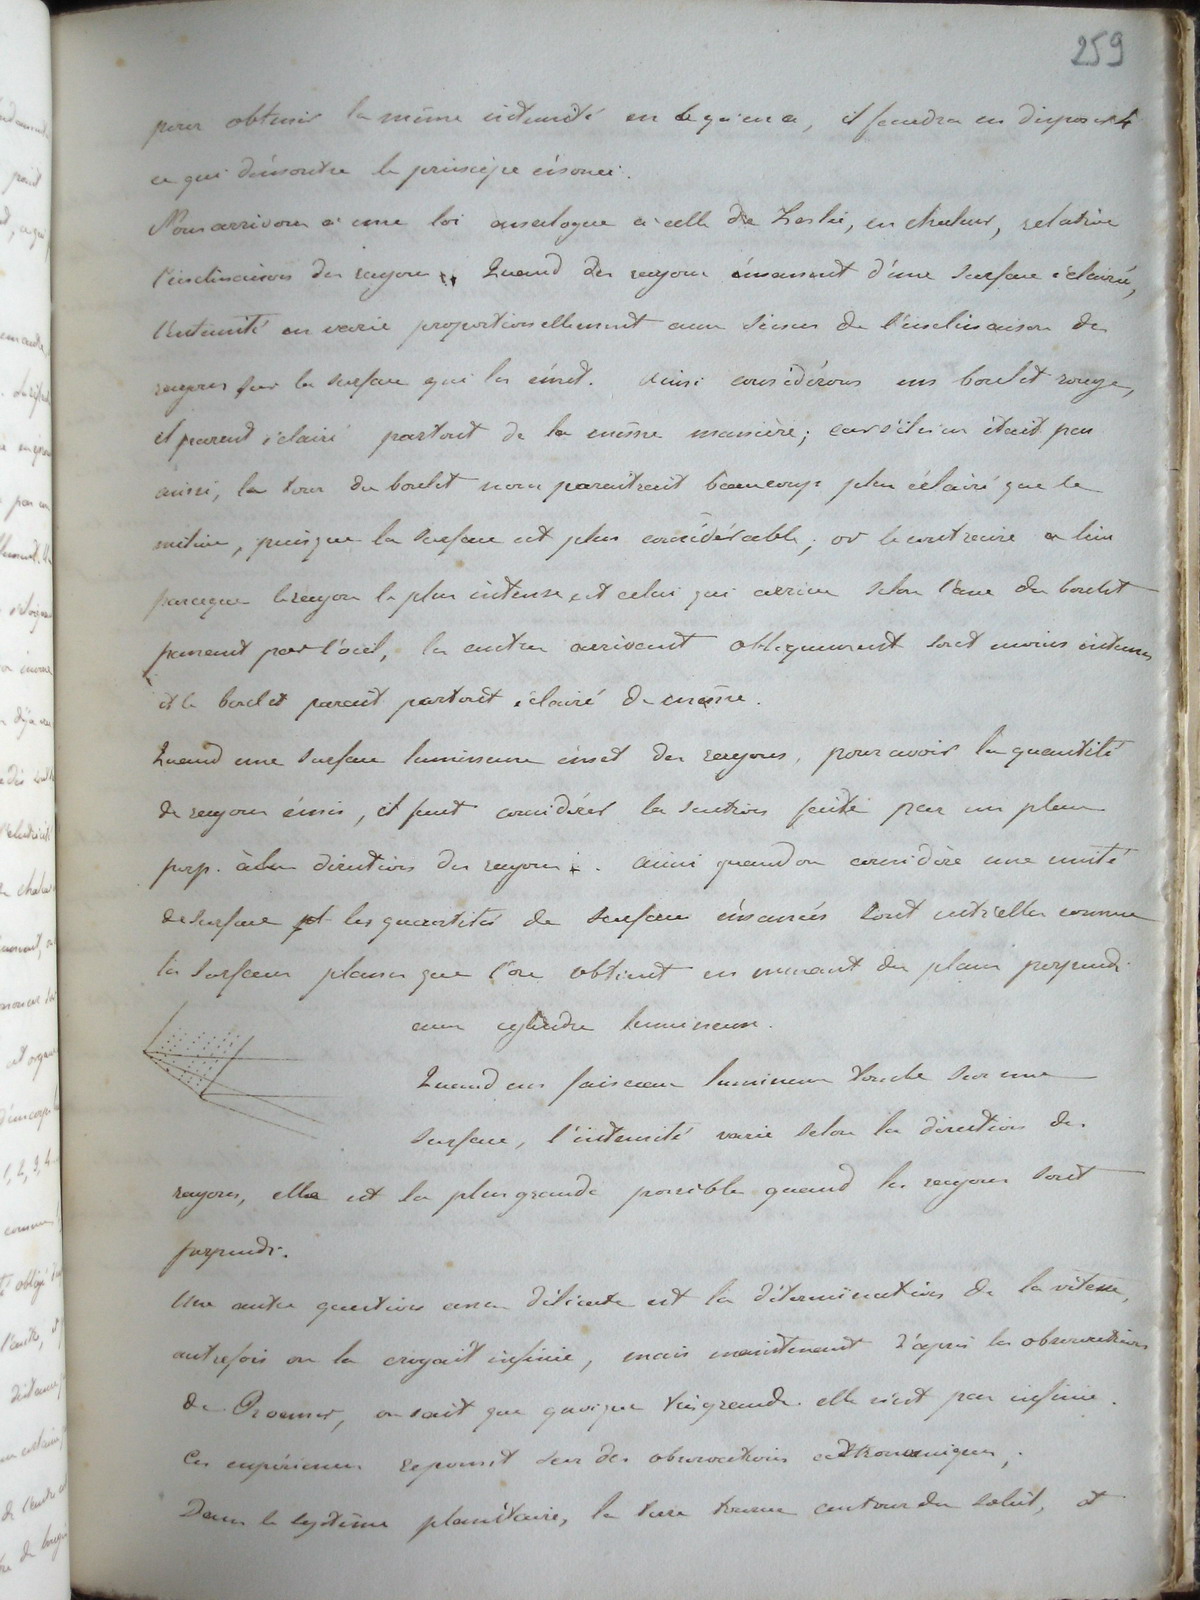 259
pour obtenir la même intensité en b qu'en a, il faudra en disposer 4
ce qui démontre le principe énoncé.
Nous arrivons à une loi analogue à celle de Leslie, en chaleur, relative
l'inclinaison des rayons. Quand des rayons émanent d'une surface éclairée,
l'intensité en varie proportionellement aux sinus de l'inclinaison des
rayons sur la surface qui les émet. Ainsi considérons un boulet rouge,
il parait éclairé partout de la même manière; car s'il n'en était pas
ainsi, le tour du boulet nous paraitrait beaucoup plus éclairé que le
milieu, puisque la surface est plus considérable; or le contraire a lieu
parceque le rayon le plus intense est celui qui arrive selon l'axe du boulet
passant par l'œil, les autres arrivant obliquement sont moins intenses
et le boulet parait partout éclairé de même.
Quand une surface lumineuse émet des rayons, pour avoir la quantité
de rayons émis, il faut considérer la section faite par un plan
perp. à la direction des rayons. Ainsi quand on considère une unité
de surface les quantités de surface émanées sont entr'elles comme
les surfaces planes que l'on obtient en menant des plans perpend.
aux cylindres lumineux.
Quand un faisceau lumineux tombe sur une
surface, l'intensité varie selon la direction des
rayons, elle est la plus grande possible quand les rayons sont
perpend.
Une autre question assez délicate est la détermination de la vitesse,
autrefois on la croyait infinie, mais maintenant d'après les observations
de Roemer, on sait que quoique très grande elle n'est pas infinie.
Ces expériences reposent sur des observations astronomiques,
Dans le système planétaire, la terre tourne autour du soleil, et